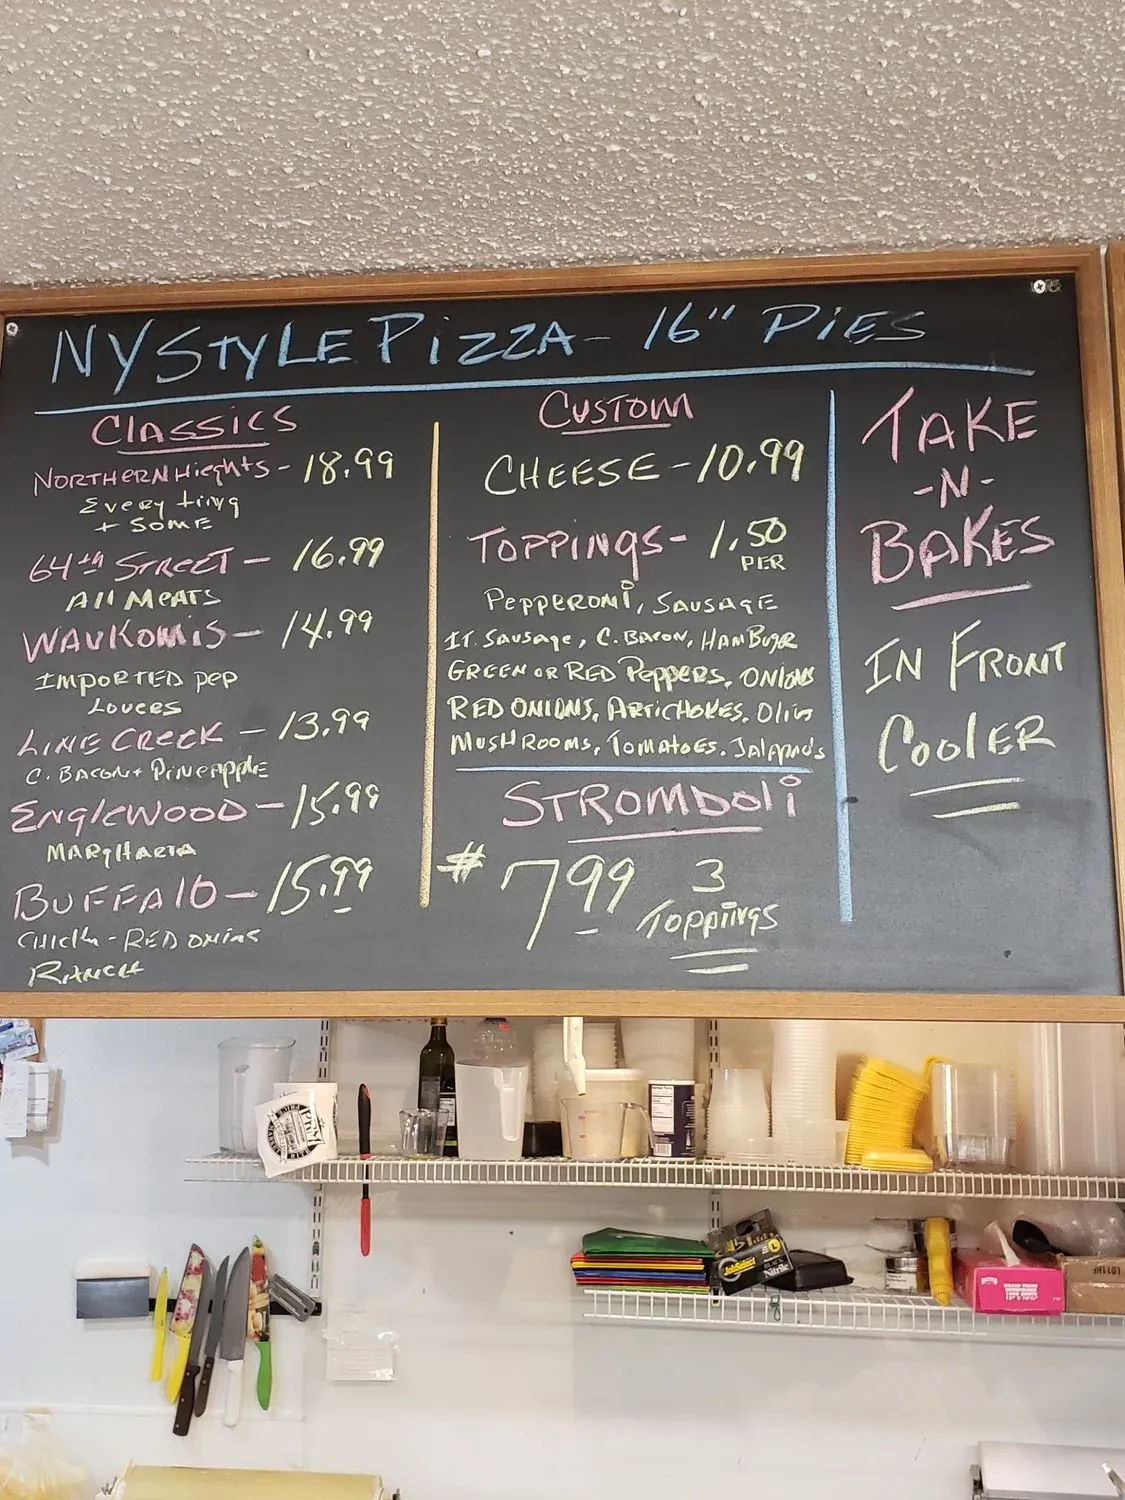 NY STYLE PIZZA - 16" PIES
CLASSICS
NORTHERN HIEGHTS - 18.99
EVERY TIING
+ SOME
64TH STREET - 16.99
All MEATS
WAUKOMIS - 14.99
IMPORTED PEP
LOVERS
LINE CREEK - 13.99
C. BACON + PINEAPPLE
ENGLEWOOD - 15.99
MARGHARIA
BUFFALO - 15.99
CHICKN - RED ONIONS
RANCH
CUSTOM
CHEESE - 10.99
TOPPINGS - 1.50
PER
PEPPERONI, SAUSAGE
IT. SAUSAGE, C. BACON, HAMBURGR
GREEN OR RED PEPPERS, ONIONS
RED ONIONS, ARTICHOKES, OLIVS
MUSHROOMS, TOMATOES, JALAPENOS
STROMBOLI
#799 3
TOPPINGS
TAKE
-N-
BAKES
IN FRONT
COOLER
JobSelect
Nitrile
L